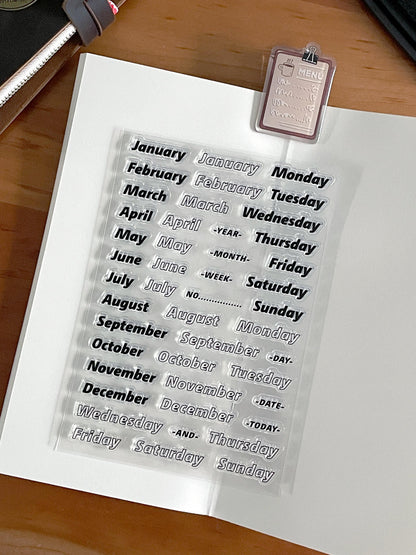 MENU
January January Monday
February February Tuesday
March March Wednesday
April April -YEAR- Thursday
May May -MONTH- Friday
June June -WEEK- Saturday
July July NO............... Sunday
August August Monday
September September -DAY-
October October Tuesday
November November -DATE-
December December -TODAY-
Wednesday -AND- Thursday
Friday Saturday Sunday